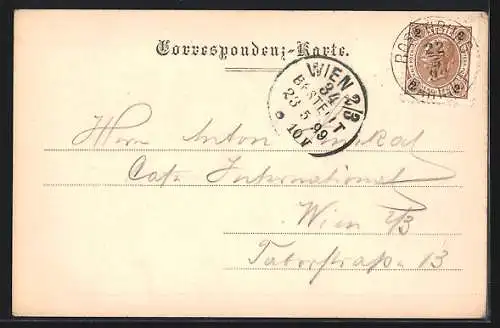 Correspondenz-Karte.
WIEN 2/3
84
BESTELLT
23 5 99
10 V
22
5
Herrn Anton
Café International
Wien 2/3
Taborstraße 13